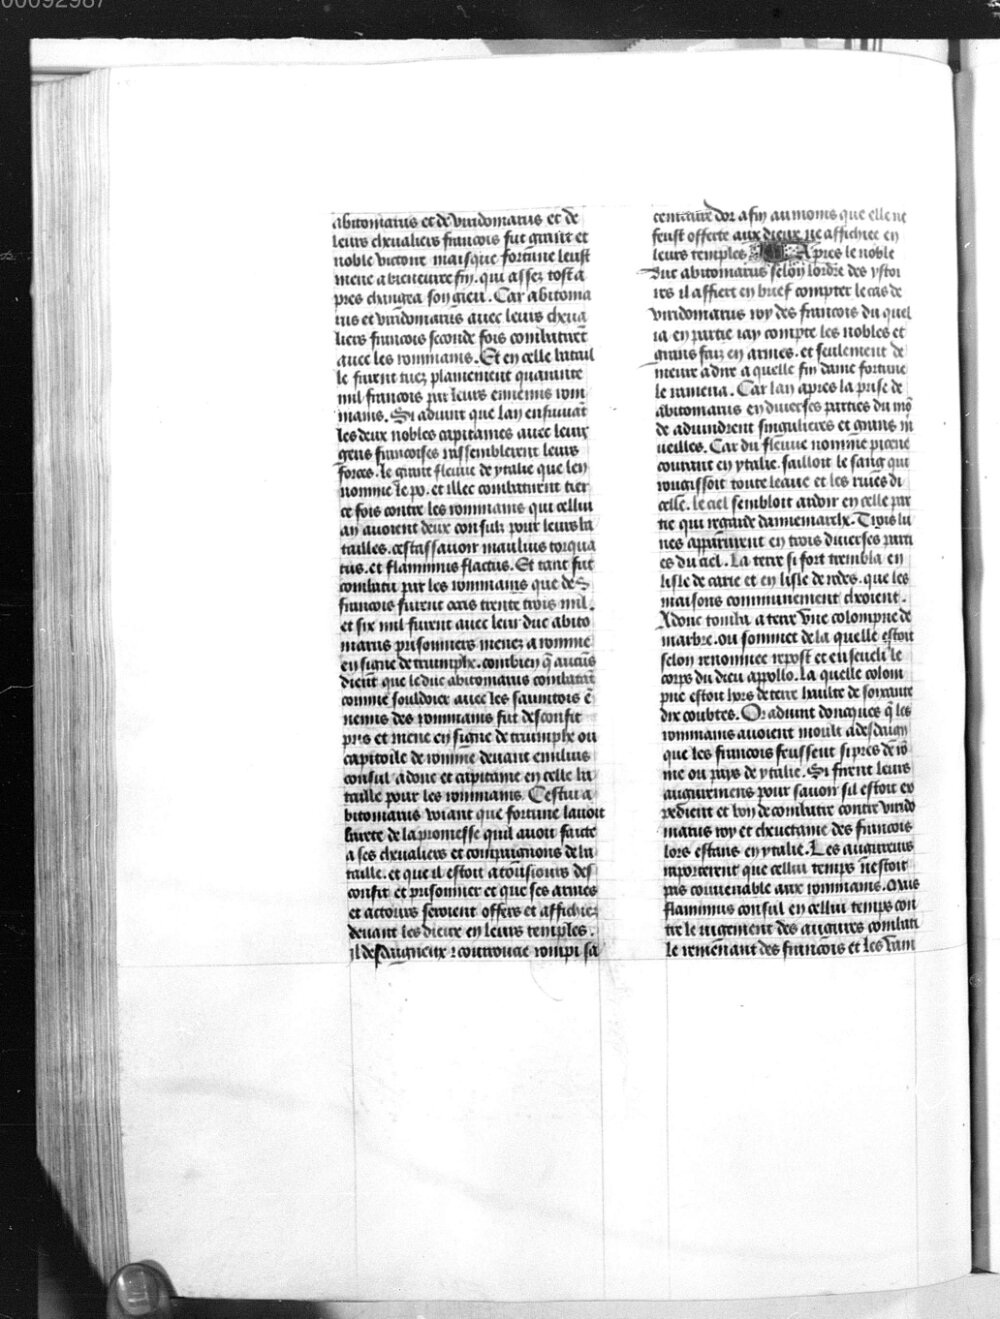 00092987
abitomarus et de viridomarus et de
leurs cheualiers francois fut grant et
noble victoire maisque fortune leust
mene a bieneuree fin. qui assez tost a
pres changea son gieu. Car abitoma
rus et viridomarus auec leurs cheua
liers francois seconde fois combatirēt
auec les rommains. Et en celle batail
le furent tuez plainement quarante
mil francois par leurs ennemis rom
mains. Si aduint que lan ensuiuāt
les deux nobles capitaines auec leurs
gens francoises rassemblerent leurs
forces. le grant fleuue de ytalie que len
nomme le po. et illec combatirent tier
ce fois contre les rommains qui cellui
an auoient deux consulz pour leurs ba
tailles. cestassauoir maulius torqua
tus. et flaminius flactus. Et tant fut
combatu par les rommains que des
francois furent occis trente trois mil.
et six mil furent auec leur duc abito
marus prisonniers menez a romme
en signe de triumphe. combien q̄ aucūs
dient que le duc abitomarus combatāt
comme souldoier auec les saunitois ē
nemis des rommains fut desconfit
pris et mene en signe de triumphe ou
capitoile de romme deuant emilius
consul adonc et capitaine en celle ba
taille pour les rommains. Cestui a
bitomarus voiant que fortune lauoit
bareté de la promesse quil auoit faicte
a ses cheualiers et compaignons de ba
taille. et que il estoit a tousiours des
confit et prisonnier et que ses armes
et actours seroient offers et affichiez
deuant les dieux en leurs temples.
il desdaigneux et courroucie rompi sa
ceinture dor a fin au moins que elle ne
feust offerte aux dieux ne affichiee en
leurs temples Apres le noble
duc abitomarus selon lordre des ystoi
res il affiert en brief compter le cas de
viridomarus roy des francois du quel
ia en partie iay compte les nobles et
grans faiz en armes. et seulement de
meure a dire a quelle fin dame fortune
le ramena. Car lan apres la prise de
abitomarus en diuerses parties du mō
de aduindrent singulieres et grans m
ueilles. Car du fleuue nomme picene
courant en ytalie. sailloit le sang qui
rougissoit toute leaue et les riues di
celle. le ciel sembloit ardoir en celle par
tie qui regarde dannemarche. Trois lu
nes apparurent en trois diuerses parti
es du ciel. La terre si fort trembla en
lisle de carie et en lisle de rodes. que les
maisons communement cheoient.
Adonc tomba a terre vne colompne de
marbre. ou sommet de la quelle estoit
selon renommee repost et enseueli le
corps du dieu appollo. La quelle colom
pne estoit hors de terre haulte de soixante
dix coubtes. Or aduint doncques q̄ les
rommains auoient moult a desdaing
que les francois feussent si pres de rō
me ou pays de ytalie. Si firent leurs
auguremens pour sauoir sil estoit ex
pedient et bon de combatre contre virido
marus roy et cheuetaine des francois
lors estans en ytalie. Les augureurs
rapporterent que cellui temps nestoit
pas conuenable aux rommains. Mais
flaminius consul en cellui temps con
tre le iugement des augures combati
le remenant des francois et les vain